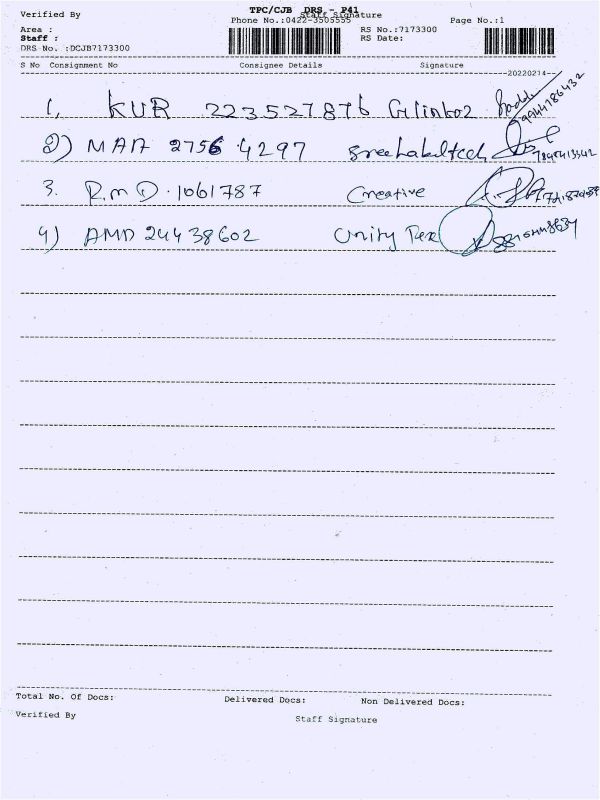 Verified By TPC/CJB DRS - P41 Staff Signature
Phone No.:0422-3505555 Page No.:1
Area : RS No.:7173300
Staff : RS Date:
DRS No. :DCJB7173300
S No Consignment No Consignee Details Signature
20220214
1, KUR 223527876 9944786432
2) MAA 2756 4297
3. RMD 1061787 Creative
4) AMD 24438602 Unity Tex
Total No. Of Docs: Delivered Docs: Non Delivered Docs:
Verified By Staff Signature